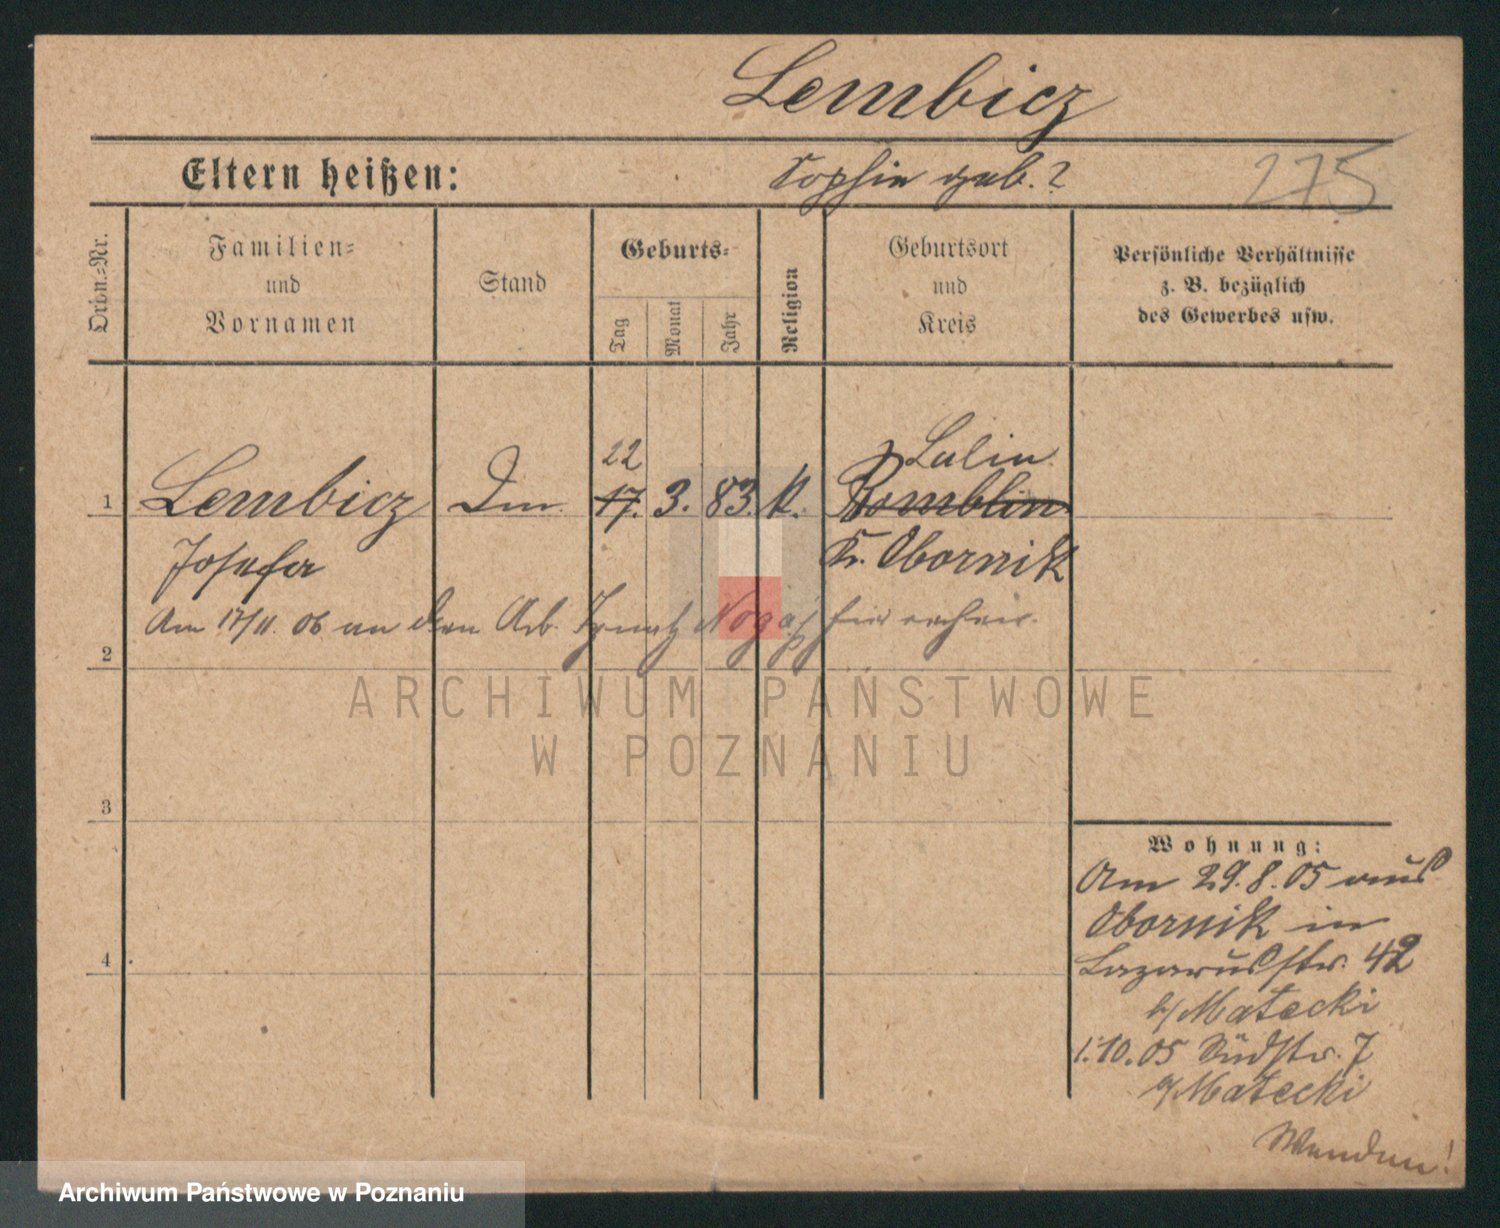 Lembicz
Eltern heißen: Sophie geb. ?
275
Ordn.=Nr.
Familien=
und
Vornamen
Stand
Geburts=
Tag
Monat
Jahr
Religion
Geburtsort
und
Kreis
Persönliche Verhältnisse
z. B. bezüglich
des Gewerbes usw.
22 Lulin
1 Lembicz Dm. 17. 3. 83. k. Romblin
Josefa Kr. Obornik
Am 17/11. 06 an den Arb. Ignatz Nogaj hier verheir.
2
3
4
ARCHIWUM PAŃSTWOWE
W POZNANIU
Wohnung:
Am 29.8.05 aus
Obornik in
Lazarusstr. 42
b/Matecki
1.10.05 Südstr. 7
b/Matecki
Wenden!
Archiwum Państwowe w Poznaniu